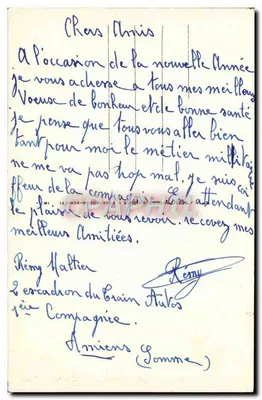 Chers Amis
A l'occasion de la nouvelle Année
je vous adresse a tous mes meilleurs
Voeux de bonheur et de bonne santé
je pense que tous vous aller bien
tant pour moi le métier militaire
ne me va pas trop mal. je suis
ffeur de la compagnie En attendant
le plaisir de vous revoir. recevez mes
meilleurs Amitiées.
Rémy
Rémy Maltier
2 escadron du Train Autos
1ère Compagnie.
Amiens (Somme)